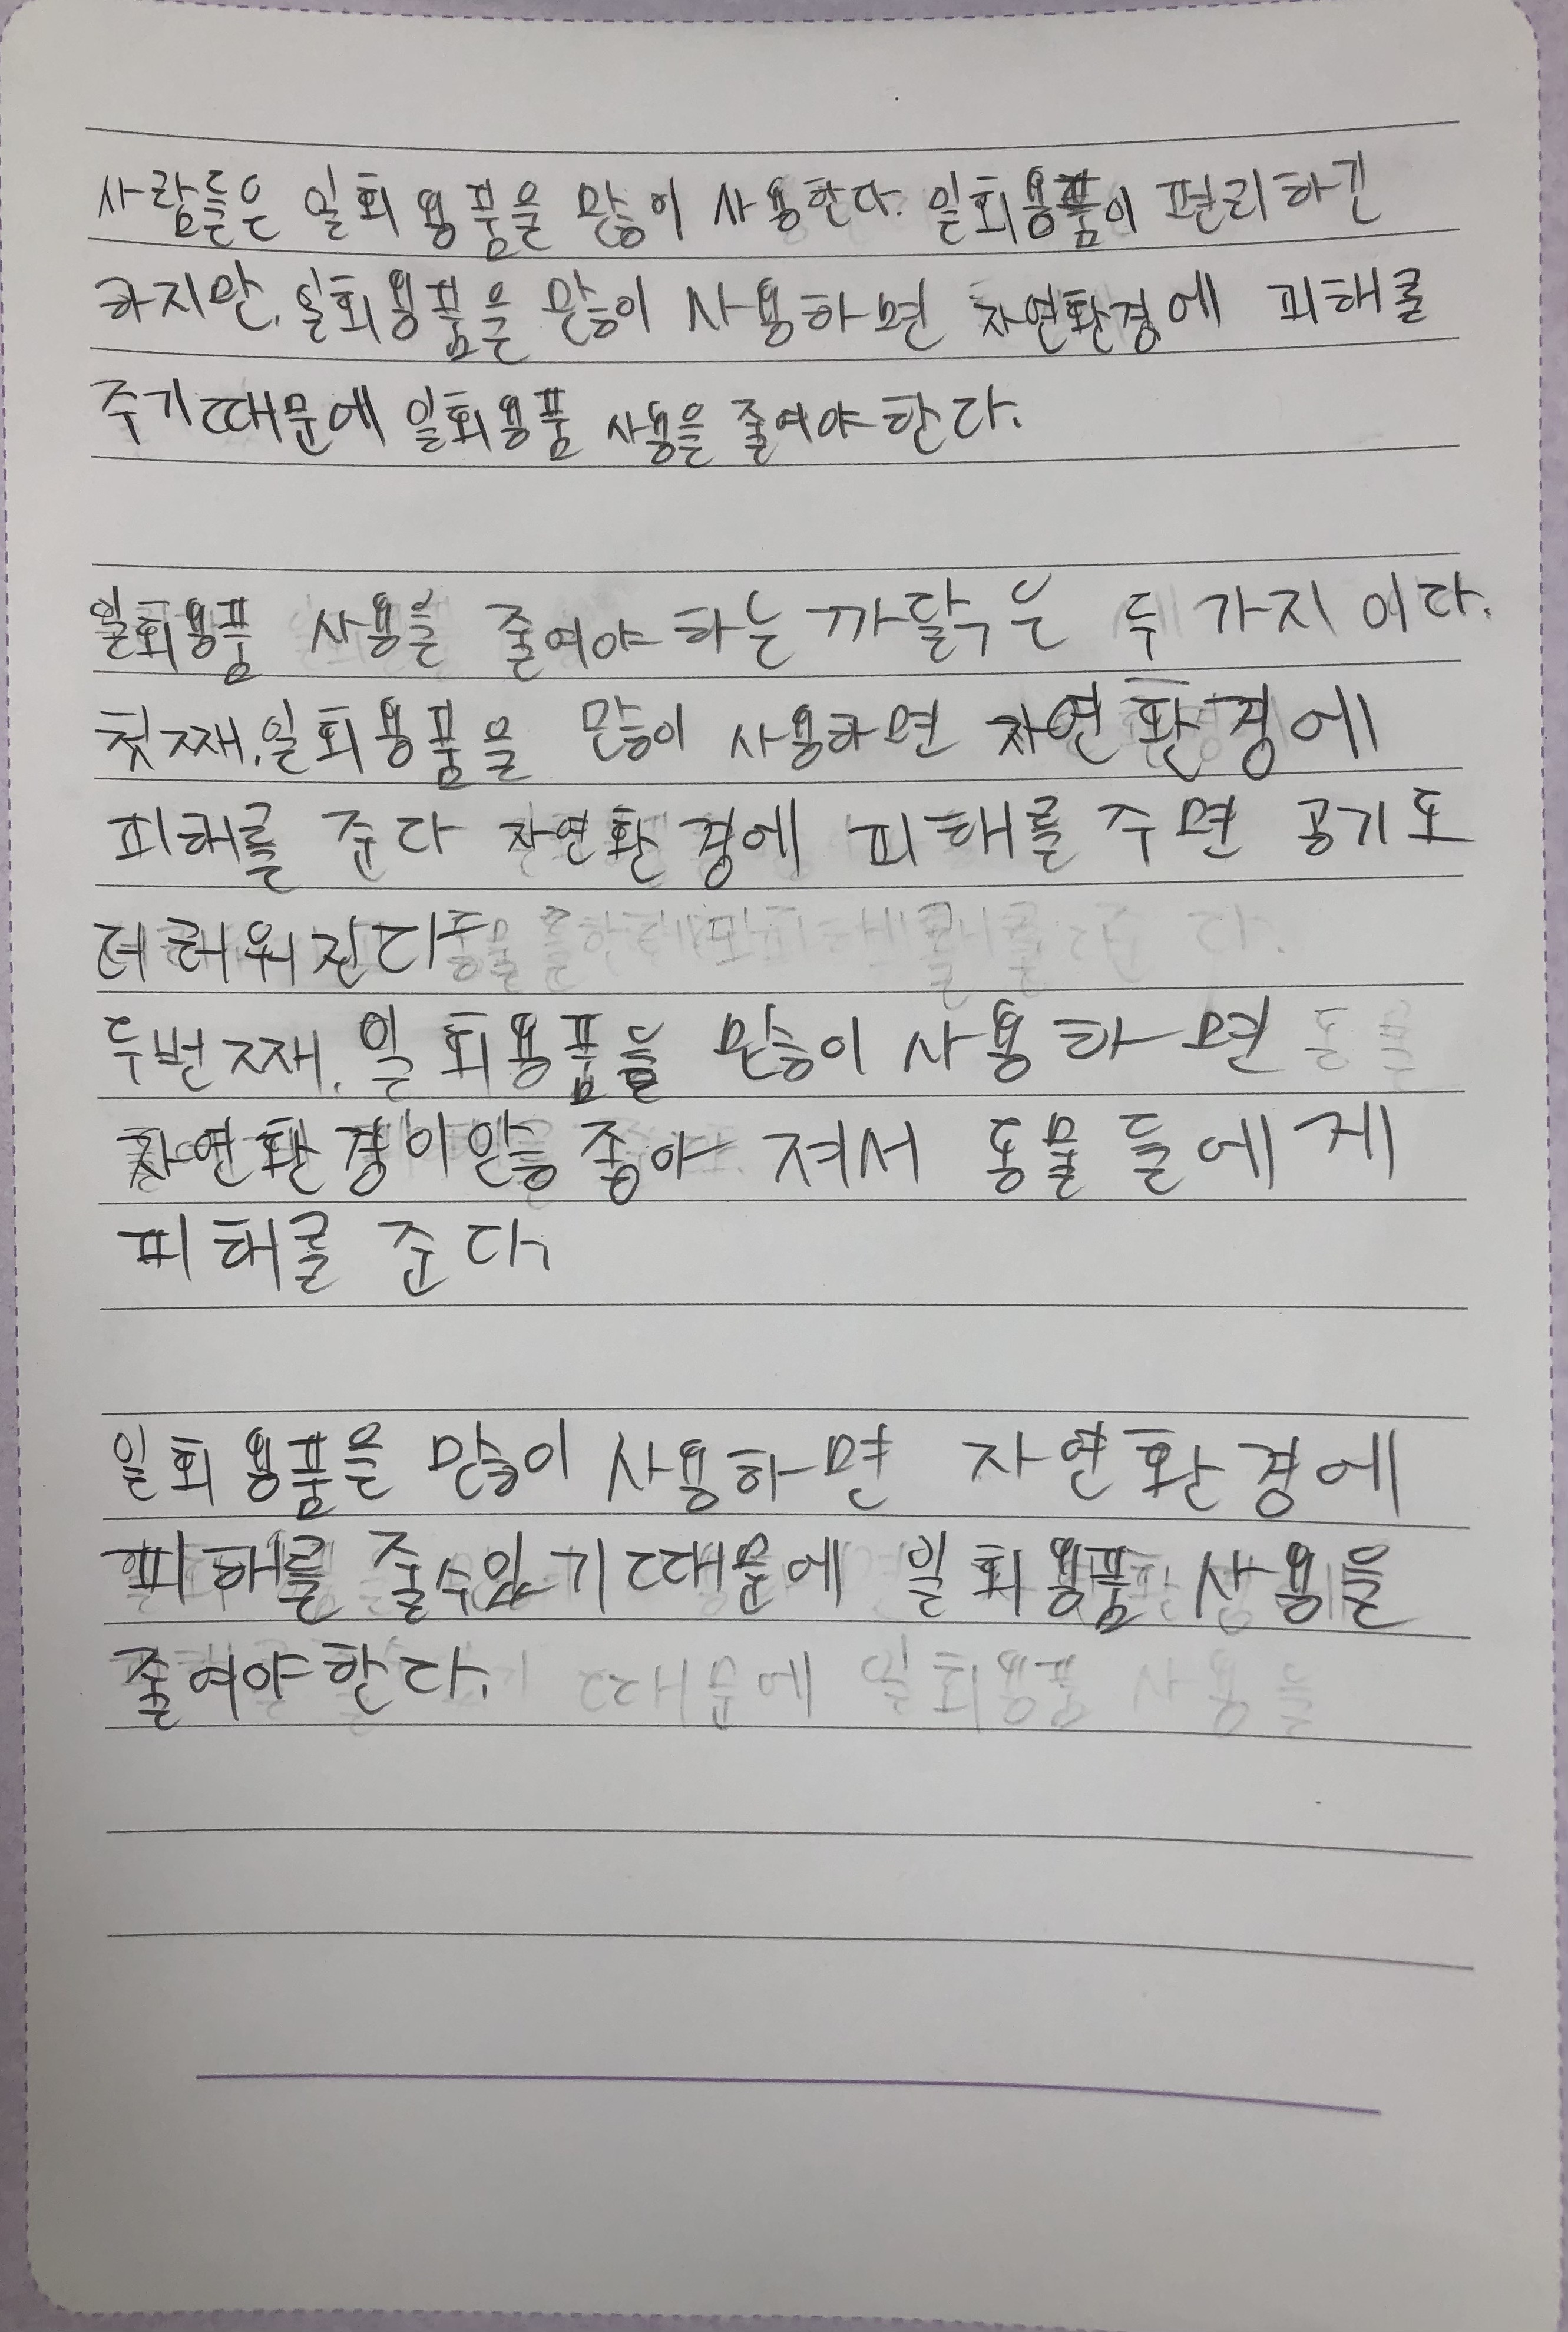 사람들은 일회용품을 많이 사용한다. 일회용품이 편리하긴
하지만, 일회용품을 많이 사용하면 자연환경에 피해를
주기때문에 일회용품 사용을 줄여야한다.
일회용품 사용을 줄여야하는 까닭은 두 가지이다.
첫째, 일회용품을 많이 사용하면 자연환경에
피해를 준다 자연환경에 피해를 주면 공기도
더러워진다
두번째, 일회용품을 많이 사용하면
자연환경이 않좋아 져서 동물들에게
피해를 준다.
일회용품을 많이 사용하면 자연환경에
피해를 줄수있기때문에 일회용품 사용을
줄여야한다.